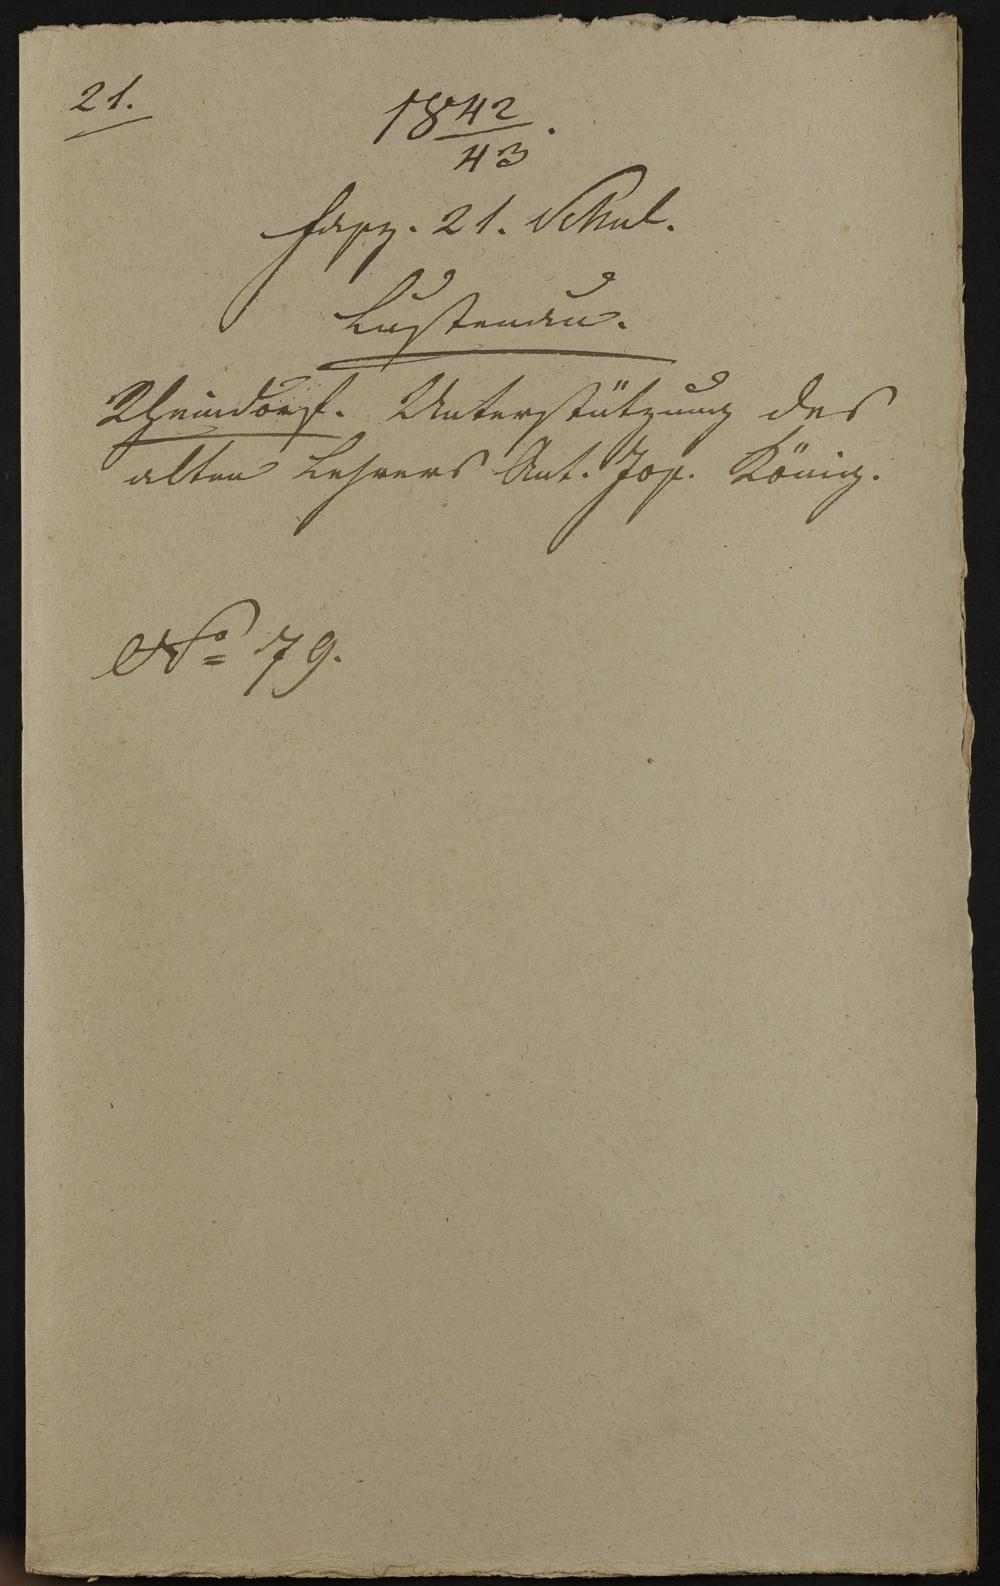 21.
1842
43.
Fasz. 21. Schul.
Lustenau.
Rheindorf. Unterstützung des
alten Lehrers Ant. Jos. König.
No 79.